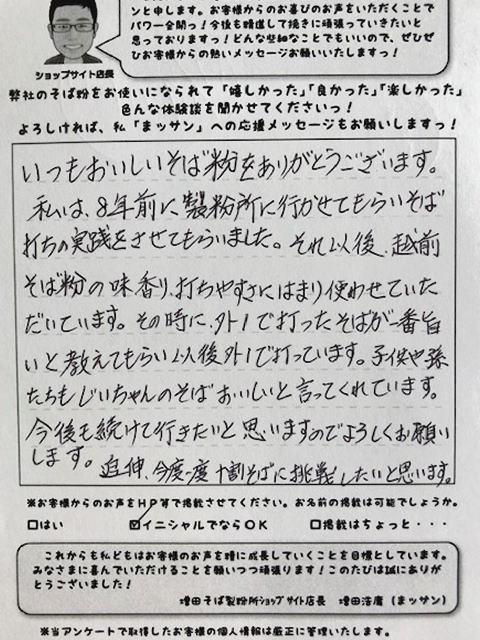 ンと申します。お客様からのお喜びのお声をいただくことで
パワー全開っ！今後も精進して挽きに頑張っていきたいと
思っておりますっ！どんな些細なことでもいいので、ぜひぜ
ひお客様からの熱いメッセージお願いいたしますっ！
ショップサイト店長
弊社のそば粉をお使いになられて「嬉しかった」「良かった」「楽しかった」
色んな体験談を聞かせてくださいっ！
よろしければ、私「まッサン」への応援メッセージもお願いしますっ！
いつもおいしいそば粉をありがとうございます。
私は、8年前に製粉所に行かせてもらいそば
打ちの実践をさせてもらいました。それ以後、越前
そば粉の味香り、打ちやすさにはまり使わせていた
だいています。その時に、外1で打ったそばが一番旨
いと教えてもらい以後外1で打っています。子供や孫
たちもじいちゃんのそばおいしいと言ってくれています。
今後も続けて行きたいと思いますのでよろしくお願い
します。追伸、今度一度十割そばに挑戦したいと思います。
※お客様からのお声をHP等で掲載させてください。お名前の掲載は可能でしょうか。
□はい ☑イニシャルでならOK □掲載はちょっと・・・
これからも私どもはお客様のお声を糧に成長していくことを目標としています。
みなさまに喜んでいただけることを願いつつ頑張ります！このたびは誠にありが
とうございました！
増田そば製粉所ショップサイト店長 増田浩庸（まッサン）
※当アンケートで取得したお客様の個人情報は厳正に管理いたします。